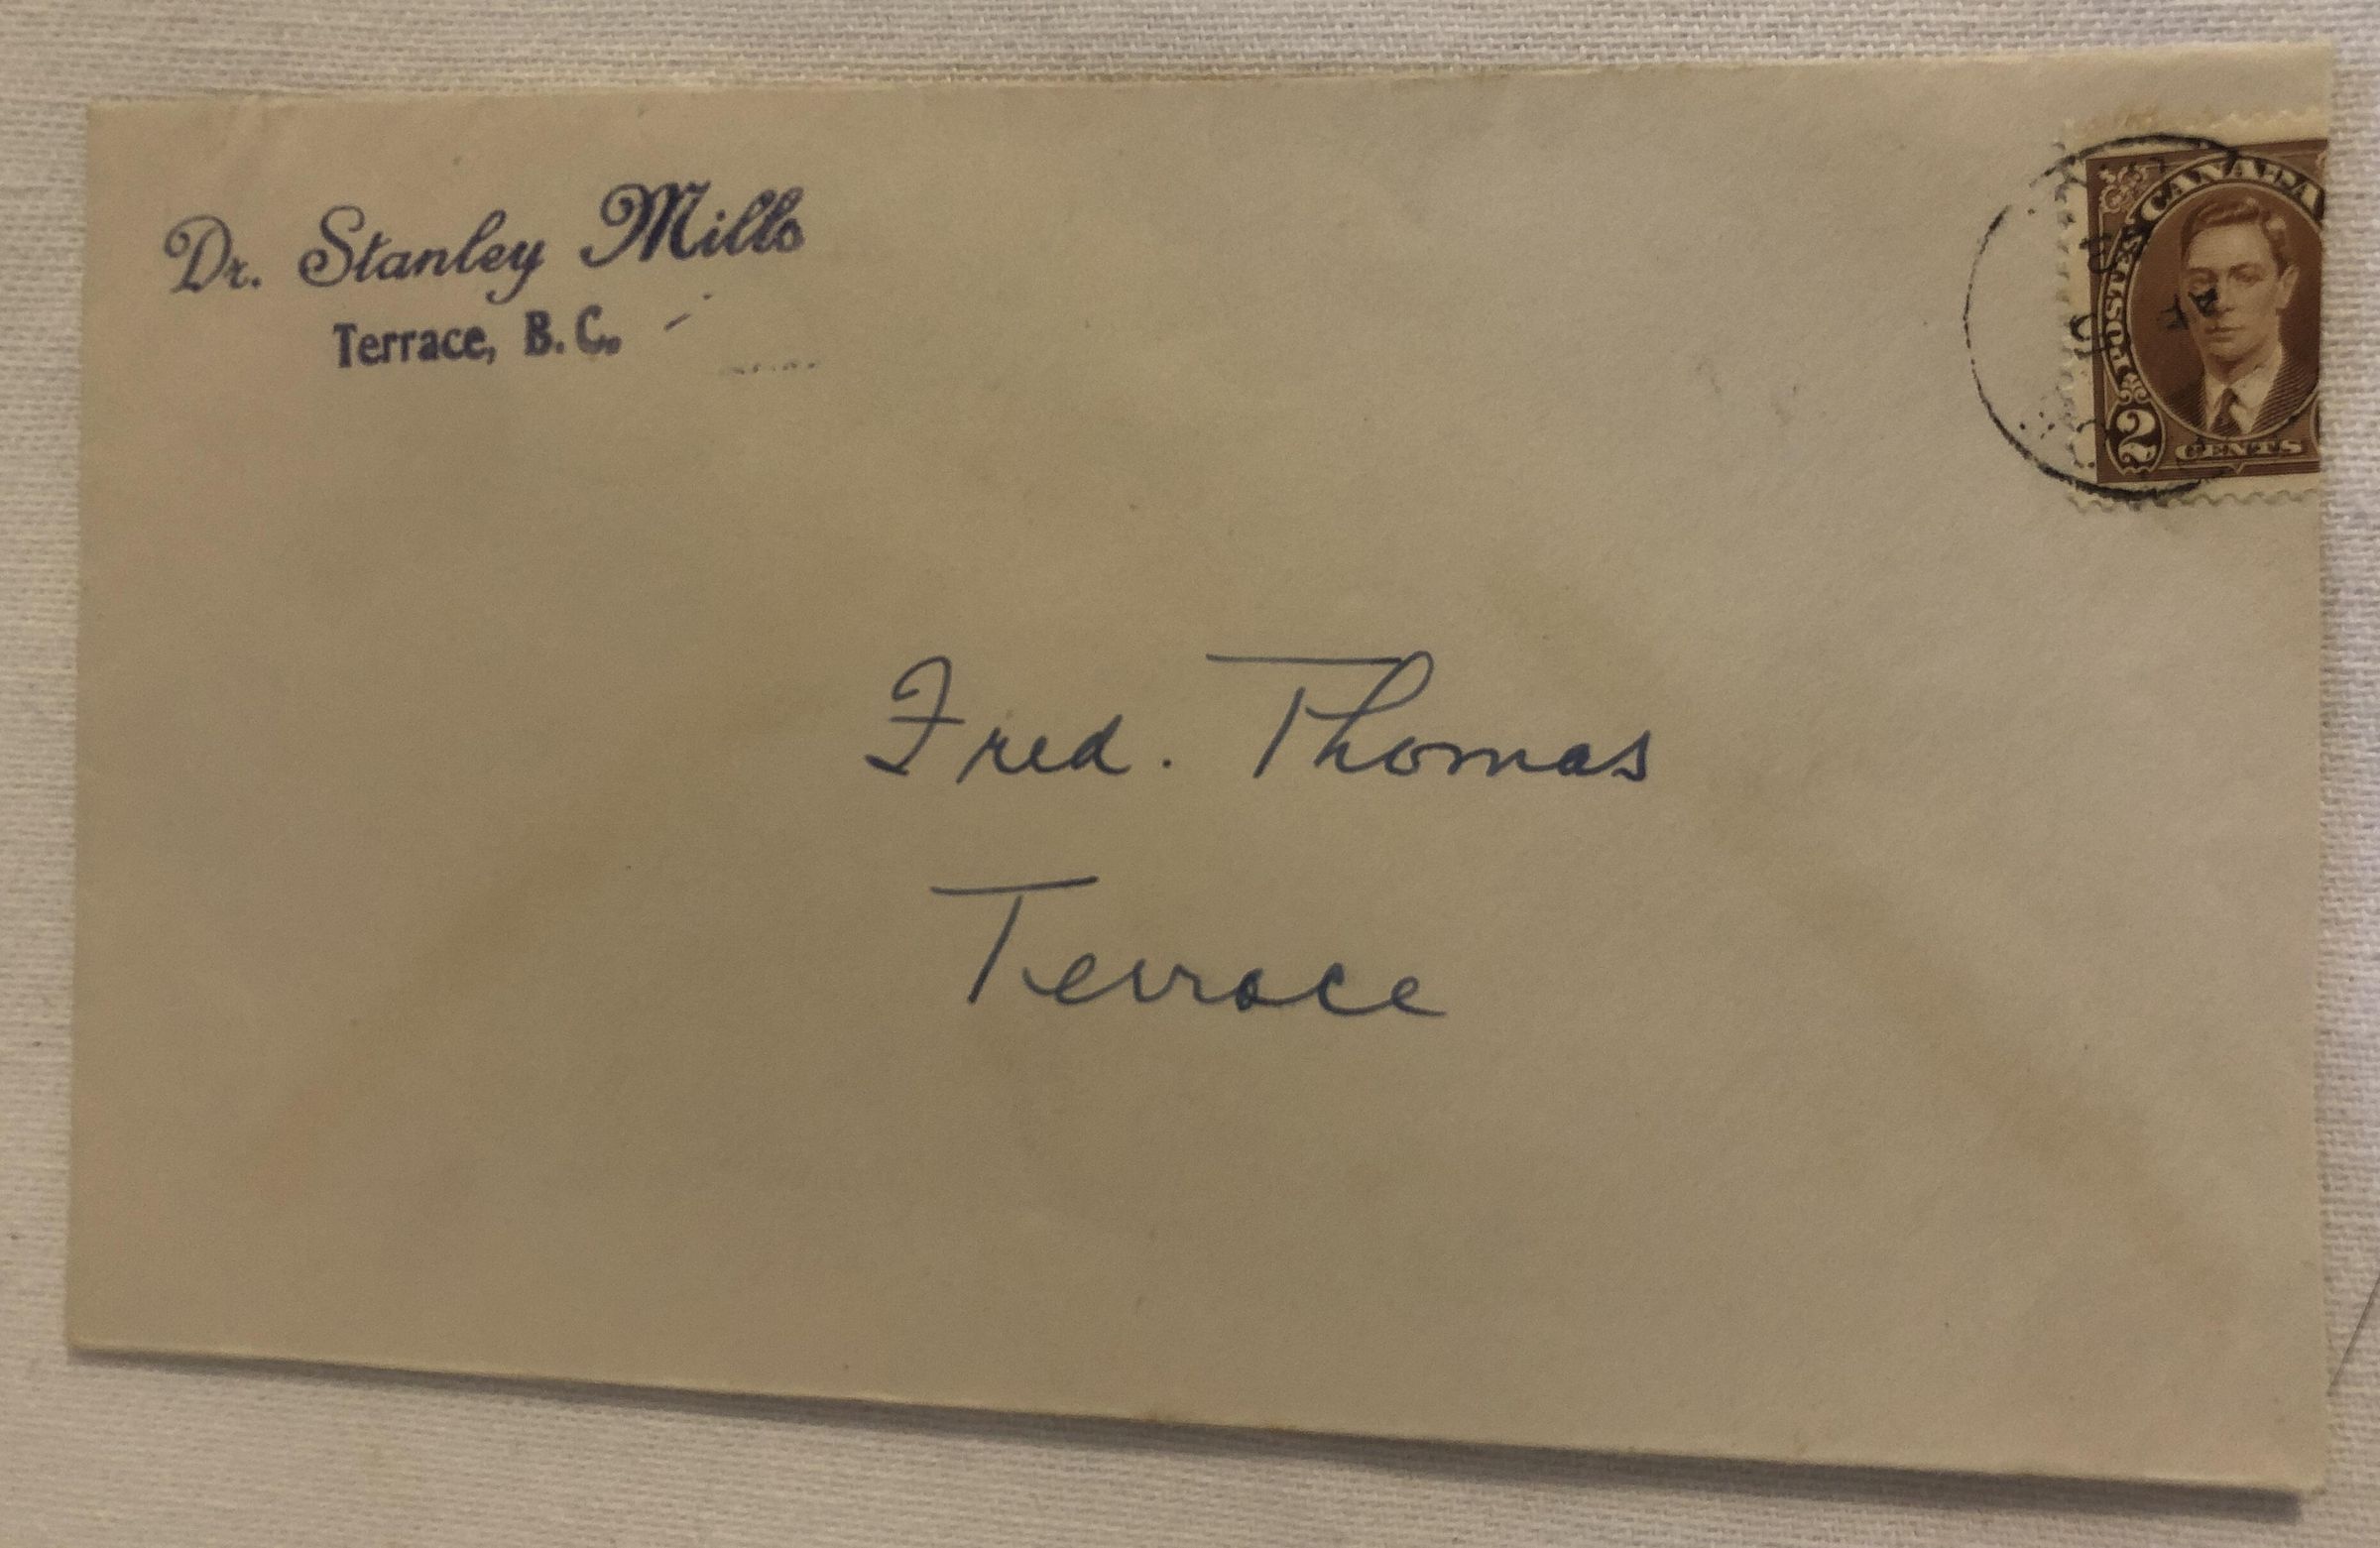 Dr. Stanley Mills
Terrace, B.C.
CANADA
POSTES
2
CENTS
Fred. Thomas
Terrace